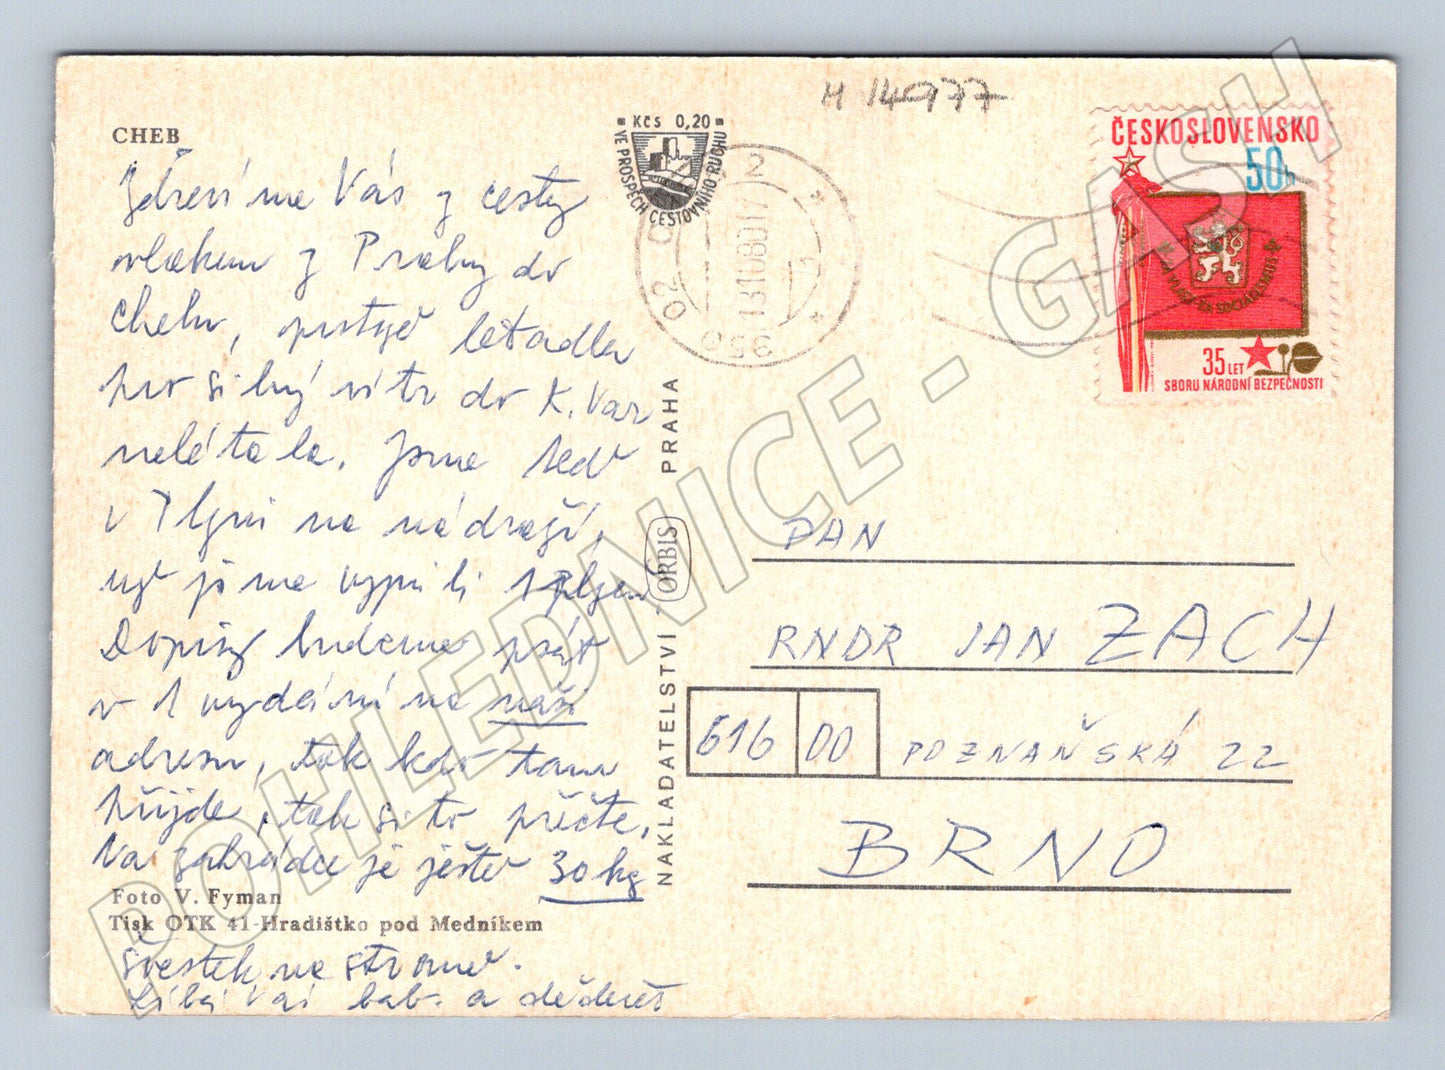 CHEB
Zdravíme Vás z cesty
vlakem z Prahy do
Chebu, protože letadla
pro silný vítr do K. Var
nelétala. Jsme teď
v Plzni na nádraží,
už jsme vypili 1 plzeň
Dopisy budeme psát
v 1 vydání na naši
adresu, tak kdo tam
přijde, tak si to přečte.
Na zahrádce je ještě 30 kg
Foto V. Fyman
Tisk OTK 41-Hradištko pod Medníkem
švestek na stromě.
Líbá Vás bab. a
M 14977
Kčs 0,20
VE PROSPĚCH CESTOVNÍHO RUCHU
ČESKOSLOVENSKO
50h
35 LET
SBORU NÁRODNÍ BEZPEČNOSTI
NAKLADATELSTVÍ ORBIS PRAHA
PAN
RNDR JAN ZACH
616 00 POZNAŇSKÁ 22
BRNO
POHLEDNICE - GASH